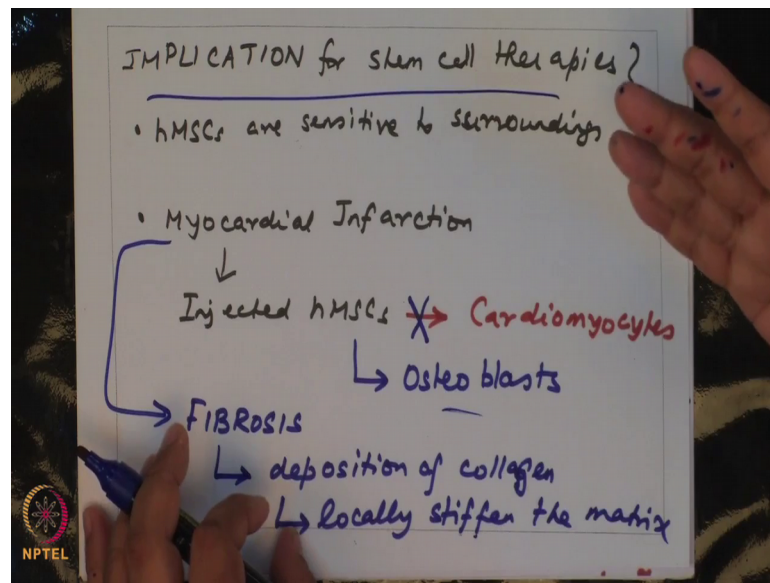 IMPLICATION for stem cell therapies?
• hMSCs are sensitive to surroundings
• Myocardial Infarction
Injected hMSCs → Cardiomyocytes
Osteoblasts
FIBROSIS
deposition of collagen
locally stiffen the matrix
NPTEL